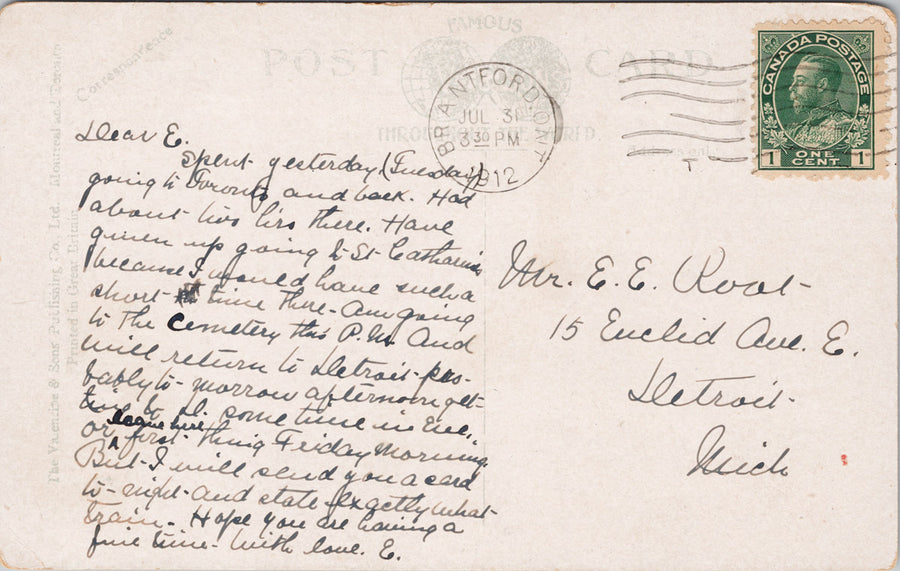 FAMOUS
POST CARD
THROUGHOUT THE WORLD
Correspondence
The Valentine & Sons Publishing Co. Ltd., Montreal and Toronto
Printed in Great Britain
BRANTFORD ONT
JUL 31
3 30 PM
1912
T
CANADA POSTAGE
1 ONE CENT 1
Dear E.
Spent yesterday (Tuesday)
going to Toronto and back. Had
about two hrs there. Have
given up going to St Catharines
because I would have such a
short time there - Am going
to the cemetery this P.M. And
will return to Detroit pro-
bably to-morrow afternoon get-
ting to D. some time in Eve.
or leave here first thing Friday Morning.
But I will send you a card
to-night and state exactly what
train. Hope you are having a
fine time. With love. E.
Mr. E. E. Root
15 Euclid Ave. E.
Detroit
Mich